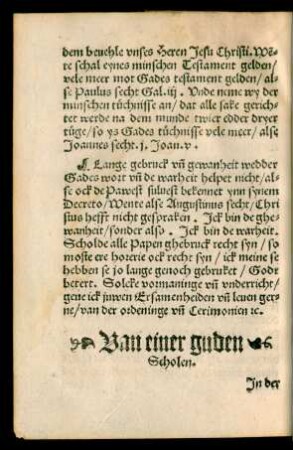 dem beuehle vnses Heren Jesu Christi. We-
re schal eynes minschen Testament gelden/
vele meer mot Gades testament gelden/ al-
se Paulus secht Gal. iij. Vnde neme wy der
minschen tüchnisse an/ dat alle sake gerich-
tet werde na dem munde twier edder dryer
tüge/ so ys Gades tüchnisse vele meer/ alse
Joannes secht. j. Joan. v.
¶ Lange gebruck vn̄ gewanheit wedder
Gades wort vn̄ de warheit helpet nicht/ al-
se ock de Pawest suluest bekennet ynn synem
Decreto/ Wente alse Augustinus secht/ Chri
stus hefft nicht gespraken. Ick bin de ghe-
wanheit/ sonder also. Ick bin de warheit.
Scholde alle Papen ghebruck recht syn/ so
moste ere horerie ock recht syn/ ick meine se
hebben se jo lange genoch gebruket/ Godt
betert. Solcke vormaninge vn̄ vnderricht/
geue ick juwen Ersamenheiden vn̄ leuen ger-
ne/ van der ordeninge vn̄ Cerimonien ꝛc.
Van einer guden
Scholen.
In der